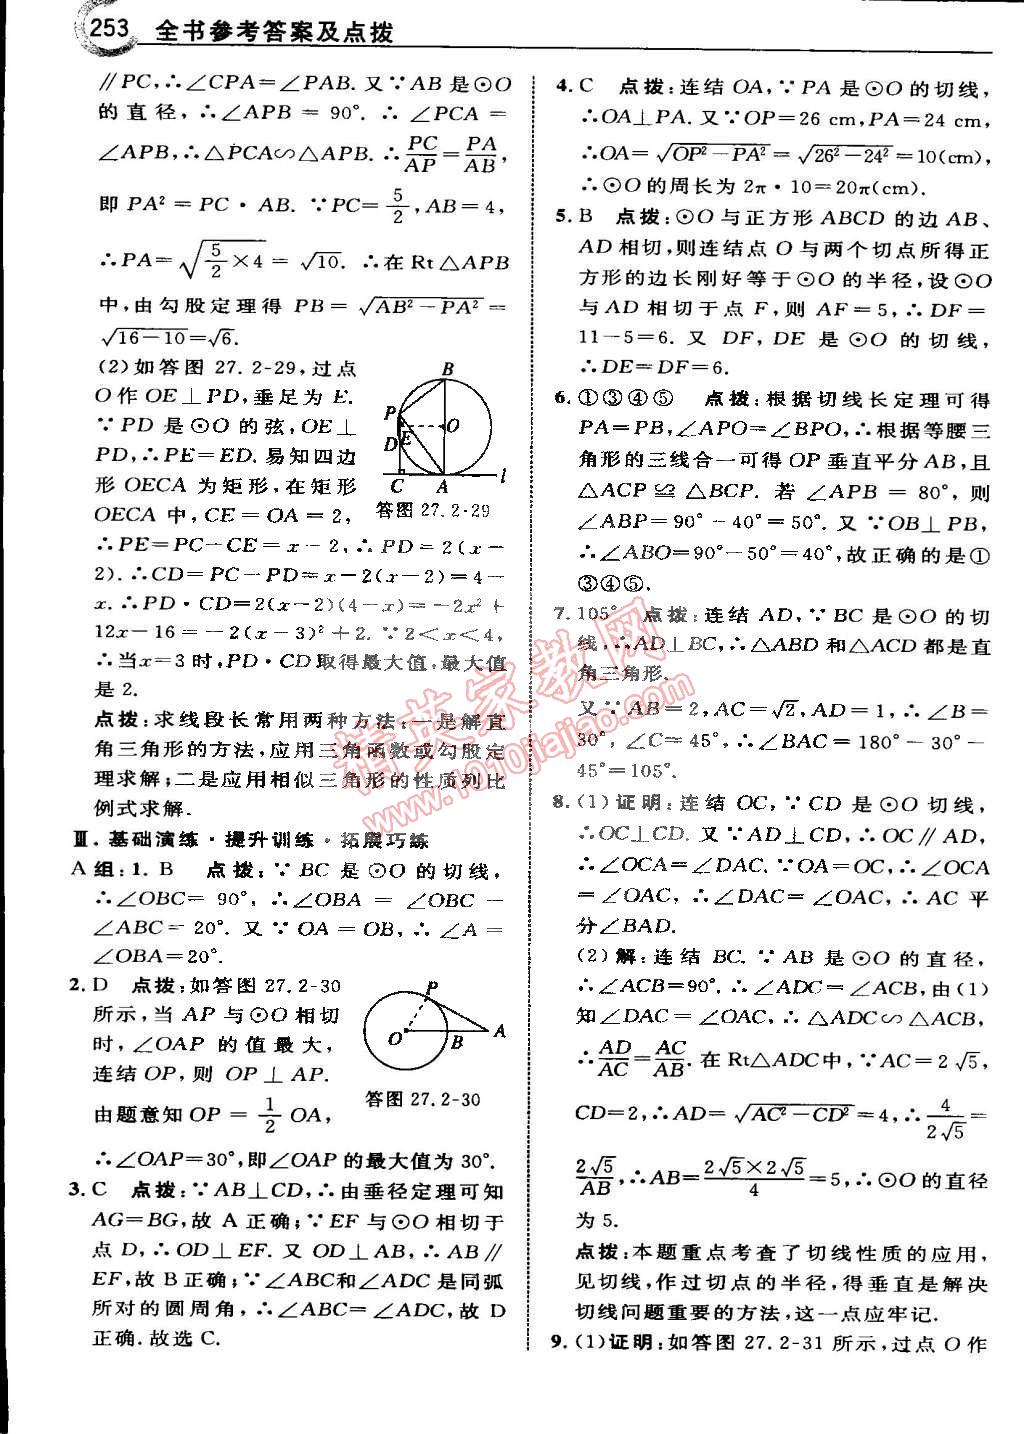 253 全书参考答案及点拨
∥PC,∴∠CPA=∠PAB. 又∵AB是⊙O
的直径,∴∠APB = 90°. ∴ ∠PCA =
∠APB,∴△PCA∽△APB. ∴PC/AP=PA/AB,
即 PA²=PC·AB. ∵PC=5/2,AB=4,
∴PA=√(5/2×4)=√10. ∴在Rt△APB
中,由勾股定理得 PB=√(AB²-PA²)=
√(16-10)=√6.
(2)如答图 27.2-29,过点
O作OE⊥PD,垂足为E.
∵ PD 是⊙O 的弦,OE⊥
PD,∴PE=ED. 易知四边
形OECA 为矩形,在矩形
OECA 中,CE=OA=2,
B
P
O
D
E
C
A
l
答图27.2-29
∴PE=PC-CE=x-2,∴PD=2(x-
2). ∴CD=PC-PD=x-2(x-2)=4-
x. ∴PD·CD=2(x-2)(4-x)=-2x²+
12x-16=-2(x-3)²+2. ∵2<x<4,
∴当x=3时,PD·CD取得最大值,最大值
是2.
点拨:求线段长常用两种方法:一是解直
角三角形的方法,应用三角函数或勾股定
理求解;二是应用相似三角形的性质列比
例式求解.
Ⅲ. 基础演练·提升训练·拓展巧练
A组:1. B 点拨:∵BC是⊙O的切线,
∴∠OBC=90°,∴∠OBA=∠OBC-
∠ABC=20°. 又∵OA=OB,∴∠A=
∠OBA=20°.
2. D 点拨:如答图27.2-30
所示,当AP与⊙O相切
时,∠OAP的值最大,
连结OP,则 OP⊥AP.
由题意知OP=1/2 OA,
P
O
B
A
答图27.2-30
∴∠OAP=30°,即∠OAP的最大值为30°.
3. C 点拨:∵AB⊥CD,∴由垂径定理可知
AG=BG,故A正确;∵EF与⊙O相切于
点D,∴OD⊥EF. 又OD⊥AB,∴AB∥
EF,故B正确;∵∠ABC和∠ADC是同弧
所对的圆周角,∴∠ABC=∠ADC,故D
正确.故选C.
4. C 点拨:连结OA,∵PA是⊙O的切线,
∴OA⊥PA. 又∵OP=26 cm,PA=24 cm,
∴OA=√(OP²-PA²)=√(26²-24²)=10(cm),
∴⊙O的周长为2π·10=20π(cm).
5. B 点拨:⊙O与正方形ABCD的边AB、
AD相切,则连结点O与两个切点所得正
方形的边长刚好等于⊙O的半径,设⊙O
与AD相切于点F,则AF=5,∴DF=
11-5=6. 又 DF,DE是⊙O的切线,
∴DE=DF=6.
6. ①③④⑤ 点拨:根据切线长定理可得
PA=PB,∠APO=∠BPO,∴根据等腰三
角形的三线合一可得OP垂直平分AB,且
△ACP≌△BCP. 若∠APB=80°,则
∠ABP=90°-40°=50°. 又∵OB⊥PB,
∴∠ABO=90°-50°=40°,故正确的是①
③④⑤.
7. 105° 点拨:连结AD,∵BC是⊙O的切
线,∴AD⊥BC,∴△ABD和△ACD都是直
角三角形.
又∵AB=2,AC=√2,AD=1,∴∠B=
30°,∠C=45°,∴∠BAC=180°-30°-
45°=105°.
8. (1)证明:连结OC,∵CD是⊙O切线,
∴OC⊥CD. 又∵AD⊥CD,∴OC∥AD,
∴∠OCA=∠DAC. ∵OA=OC,∴∠OCA
=∠OAC,∴∠DAC=∠OAC,∴AC平
分∠BAD.
(2)解:连结BC. ∵AB是⊙O的直径,
∴∠ACB=90°. ∴∠ADC=∠ACB,由(1)
知∠DAC=∠OAC,∴△ADC∽△ACB,
∴AD/AC=AC/AB. 在Rt△ADC中,∵AC=2√5,
CD=2,∴AD=√(AC²-CD²)=4,∴4/(2√5)=
2√5/AB,∴AB=(2√5×2√5)/4=5,∴⊙O的直径
为5.
点拨:本题重点考查了切线性质的应用,
见切线,作过切点的半径,得垂直是解决
切线问题重要的方法,这一点应牢记.
9. (1)证明:如答图27.2-31所示,过点O作
精英家教网
www.1010jiajiao.com